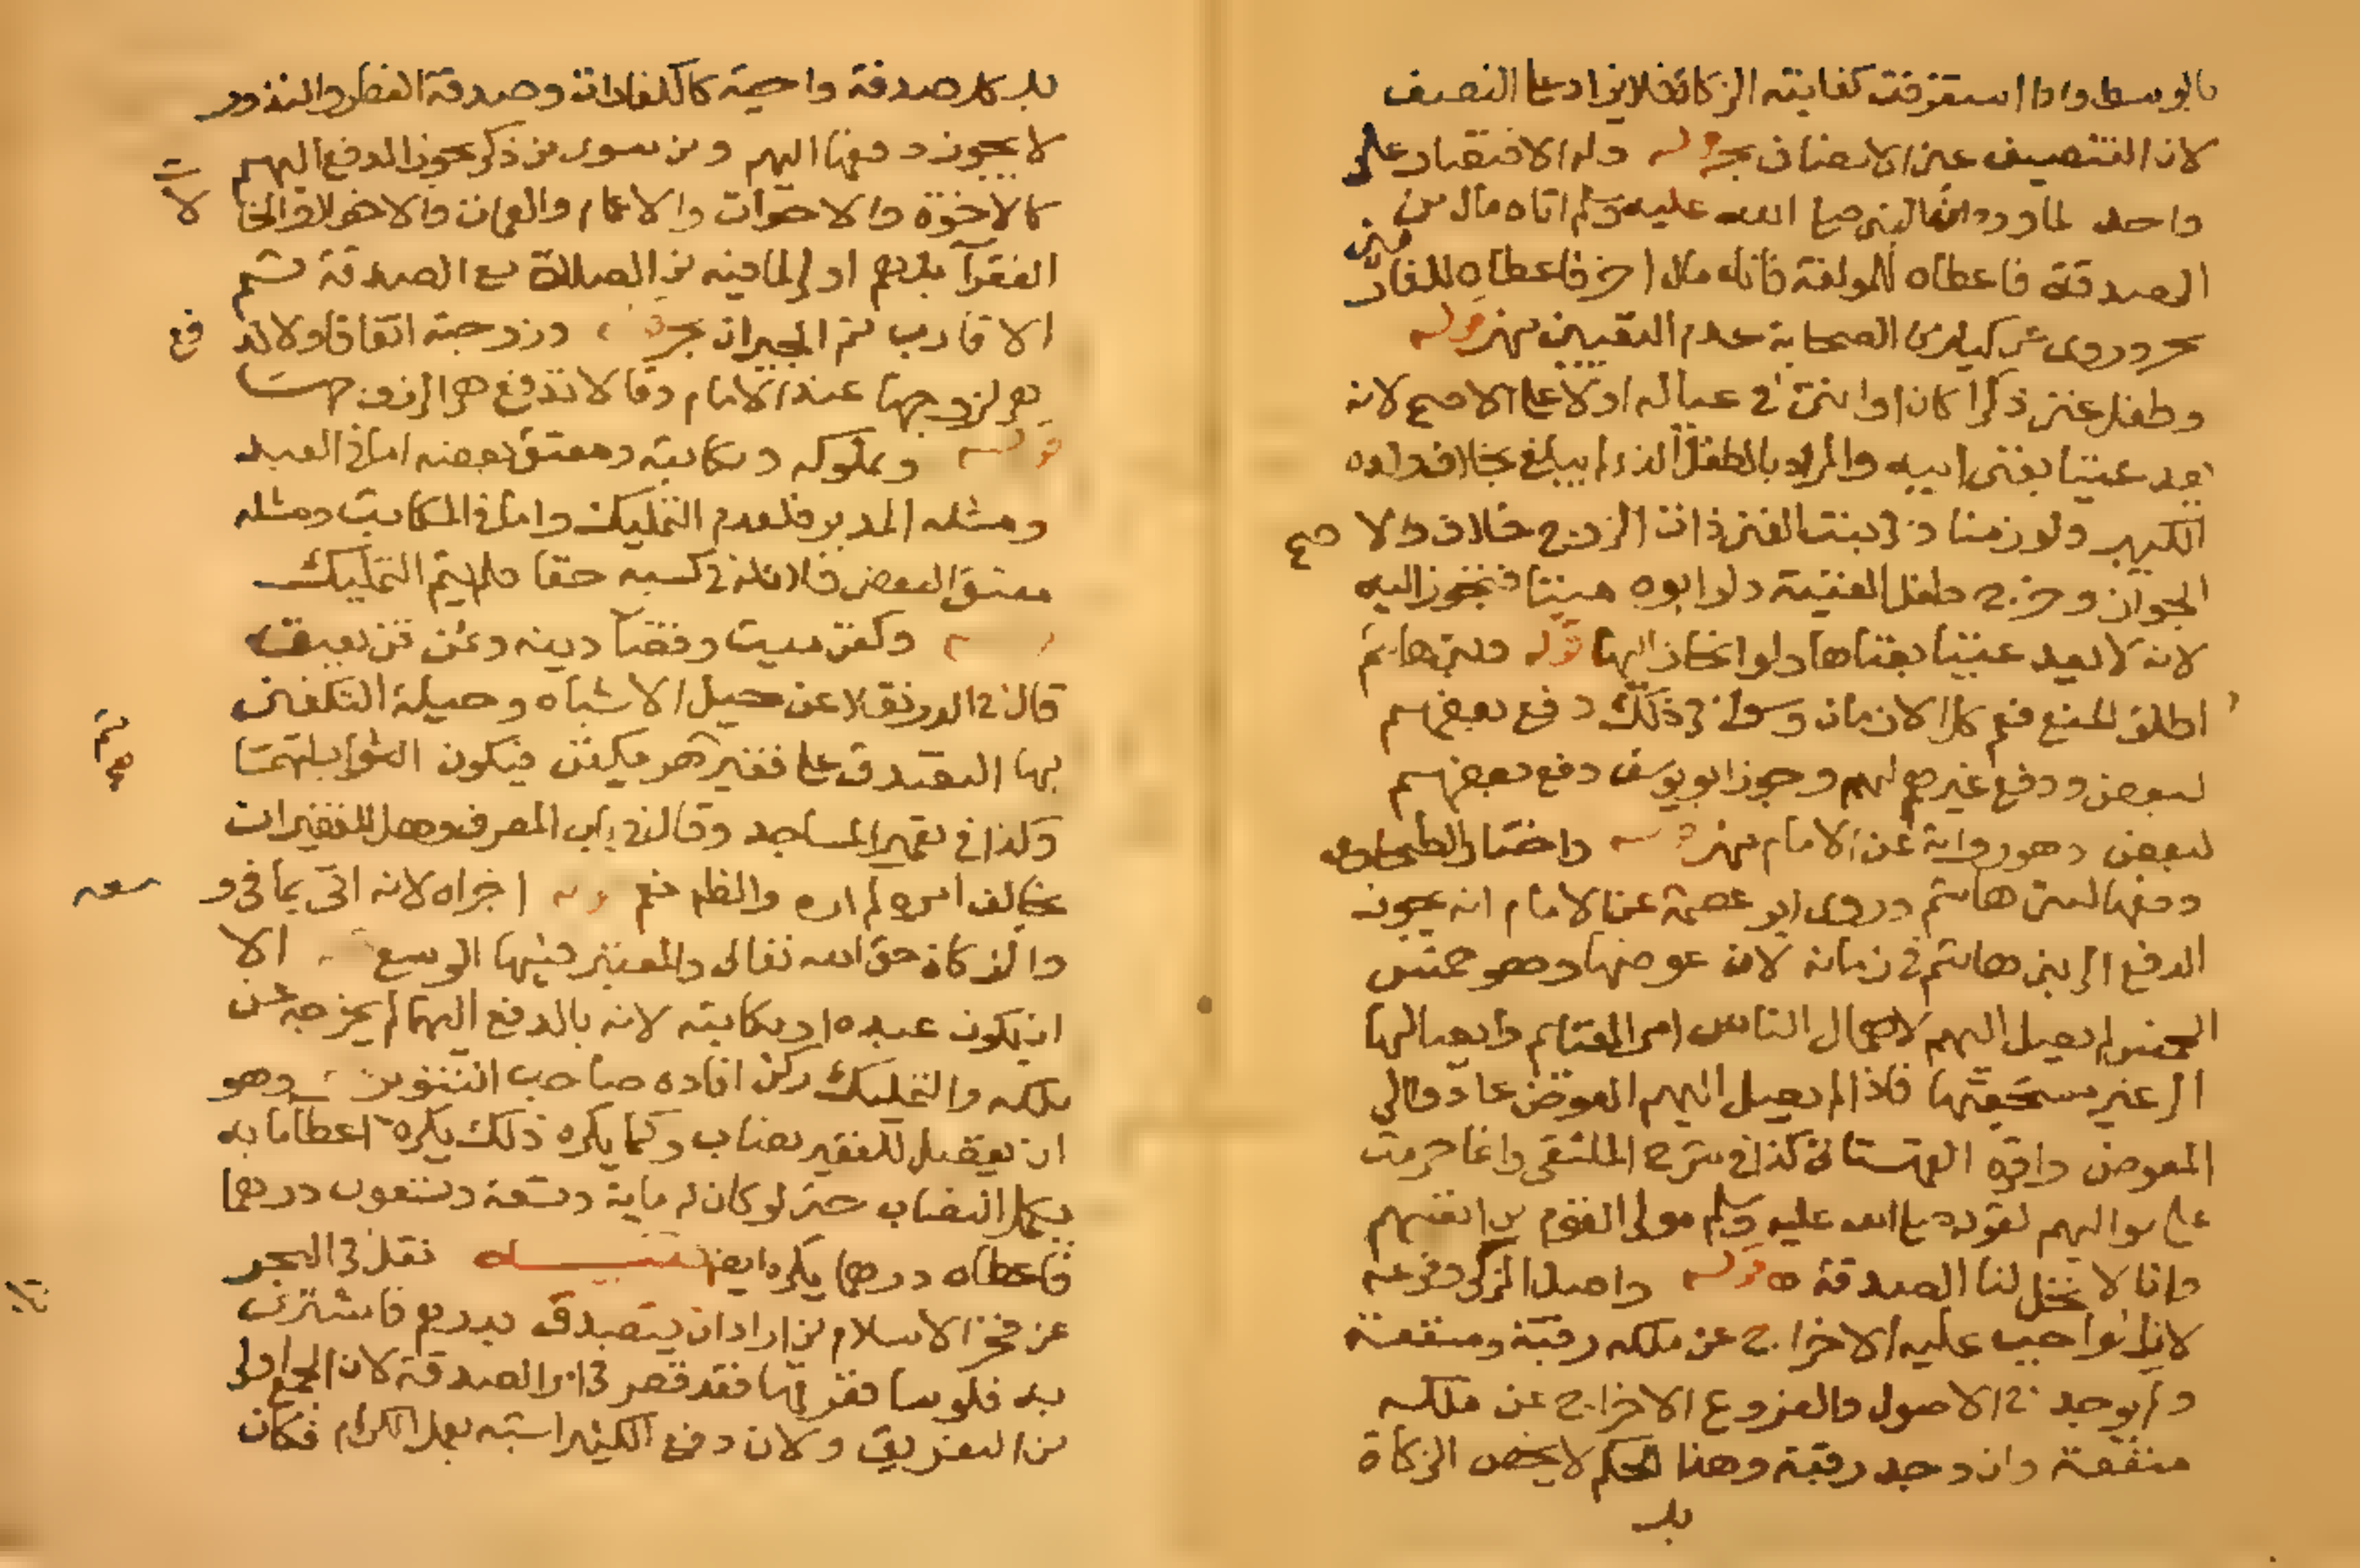 بالوسط واذا استغرقت كفايته الزكاة فلا يزاد على النصف
لان التنصيف عين الانصاف بحر قوله وله الاقتصار على
واحد لما ورد ان النبي صلى الله عليه وسلم اتاه مال من
الصدقة فاعطاه للمولفة فاتاه مال اخر فاعطاه للغار مين
بحر وروى عن كبار من الصحابة عدم التعيين نهر قوله
وطفل غني ذكرا كان او انثى في عياله او لا على الاصح لانه
يعد غنيا بغنى ابيه والمراد بالطفل الذي لم يبلغ بخلاف ولده
الكبير ولو زمنا وفي بنت الغني ذات الزوج خلاف والا صح
الجواز وخرج طفل الغنية ولو ابوه ميتا فتجوز اليه
لانه لا يعد غنيا بغناها ولو انحاز اليها قوله وبني هاشم
اطلق المنع فعم كل الازمان وسواء في ذلك دفع بعضهم
لبعض ودفع غيرهم لهم وجوز ابو يوسف دفع بعضهم
لبعض وهو رواية عن الامام نهر قوله واختار الطحاوي
دفعها لبني هاشم وروى ابو عصمة عن الامام انه يجوز
الدفع الى بني هاشم في زمانه لان عوضها وهو خمس
الخمس لم يصل اليهم لاهمال الناس امر الغنائم وايصالها
الى غير مستحقها فاذا لم يصل اليهم العوض عادوا الى
المعوض واقره القهستاني كذا في شرح الملتقى وانما حرمت
على مواليهم لقوله صلى الله عليه وسلم مولى القوم من انفسهم
وانا لا تحل لنا الصدقة قوله واصل المزكي وفرعه
لان الواجب عليه الاخراج عن ملكه رقبة ومنفعة
ولم يوجد في الاصول والفروع الاخراج عن ملكه
منفعة وان وجد رقبة وهذا الحكم لا يخص الزكاة
بل
بل كل صدقة واجبة كالكفارات وصدقة الفطر والنذور
لا يجوز دفعها اليهم ومن سوى من ذكر يجوز الدفع اليهم
كالاخوة والاخوات والاعمام والعمات والاخوال والخا لات
الفقرآ بل هم اولى لما فيه من الصلاة مع الصدقة ثم
الاقارب ثم الجيران بحر قوله وزوجته اتفاقا ولا تد فع
هي لزوجها عند الامام وقالا تدفع هي الزوجها
قوله ومملوكه ومكاتبه ومعتق بعضه اما في العبد
ومثله المدبر فلعدم التمليك واما في المكاتب ومثله
معتق البعض فلان له في كسبه حقا فلم يتم التمليك
وكفن ميت وقضآ دينه وثمن قن يعتق
قال في الدر نقلا عن حيل الاشباه وحيلة التكفين
بها التصدق على فقير ثم هو يكفن فيكون الثواب لهما
وكذا في تعمير المساجد وقال في باب المصرف وهل للفقير ان
يخالف امره لم اره والظاهر نعم قوله اجزاه لانه اتى بما في و سعه
والزكاة حق الله تعالى والمعتبر فيها الوسع الا
ان يكون عبده او مكاتبه لانه بالدفع اليهما لم يخرجه عن
ملكه والتمليك ركن افاده صاحب التنوير وهو
ان يفضل للفقير نصاب وكما يكره ذلك يكره اعطآ ما به
يكمل النصاب حتى لو كان له ماية وتسعة وتسعون درهما
فاعطاه درهما يكره ايضا تنبيه نقل في البحر
عن فخر الاسلام من اراد ان يتصدق بدرهم فاشترى
به فلوسا ففرقها فقد قصر في امر الصدقة لان الجمع اولى
من التفريق ولان دفع الكثير اشبه بعمل الكرام فكان